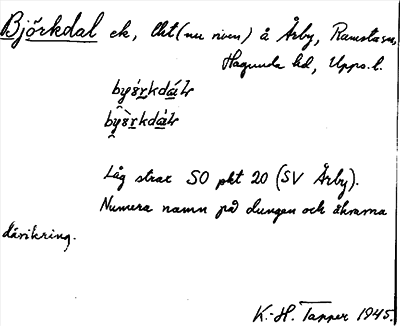 Björkdal ek, lht (nu riven) å Ärby, Ramsta sn,
Hagunda hd, Upps. l.
Låg strax SO pkt 20 (SV Ärby).
Numera namn på dungen och åkrarna
däromkring.
K.-H. Tapper 1945.